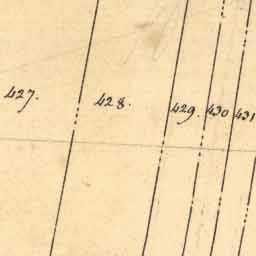 427. 428. 429 430 431